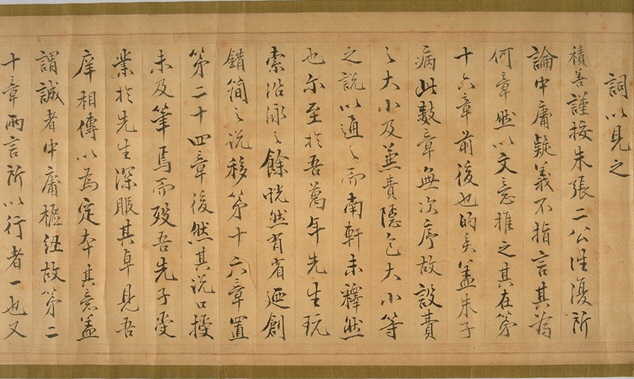 詞以見之
積善謹按朱張二公往復所
論中庸疑義不指言其為
何章然以文意推之其在第
十六章前後也的矣蓋朱子
病此數章無次序故設費
之大小及兼費隱包大小等
之説以通之而南軒未釋然
也尔至於吾萬年先生玩
索沿泳之餘恍然有省廼創
錯簡之説移第十六章置
第二十四章後然其説口授
未及筆焉而歿吾先子受
業於先生深服其卓見吾
庠相傳以為定本其意蓋
謂誠者中庸樞紐故第二
十章兩言所以行者一也又